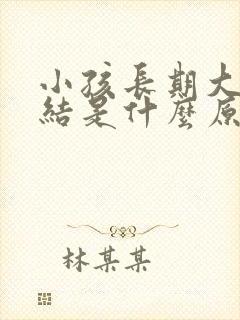 小孩長期大
結是什麼原
林某某